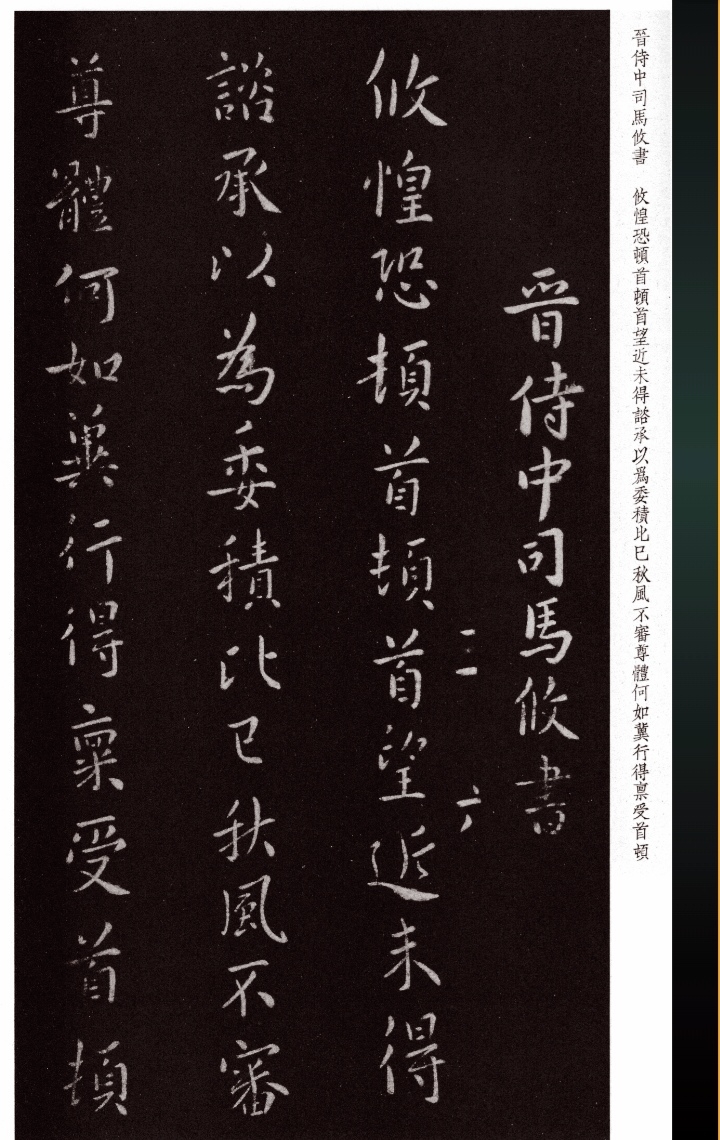 晉侍中司馬攸書　攸惶恐頓首頓首望近未得諮承以爲委積比已秋風不審尊體何如冀行得禀受首頓
晉侍中司馬攸書
二 六
攸惶恐頓首頓首望近未得
諮承以為委積比已秋風不審
尊體何如冀行得稟受首頓